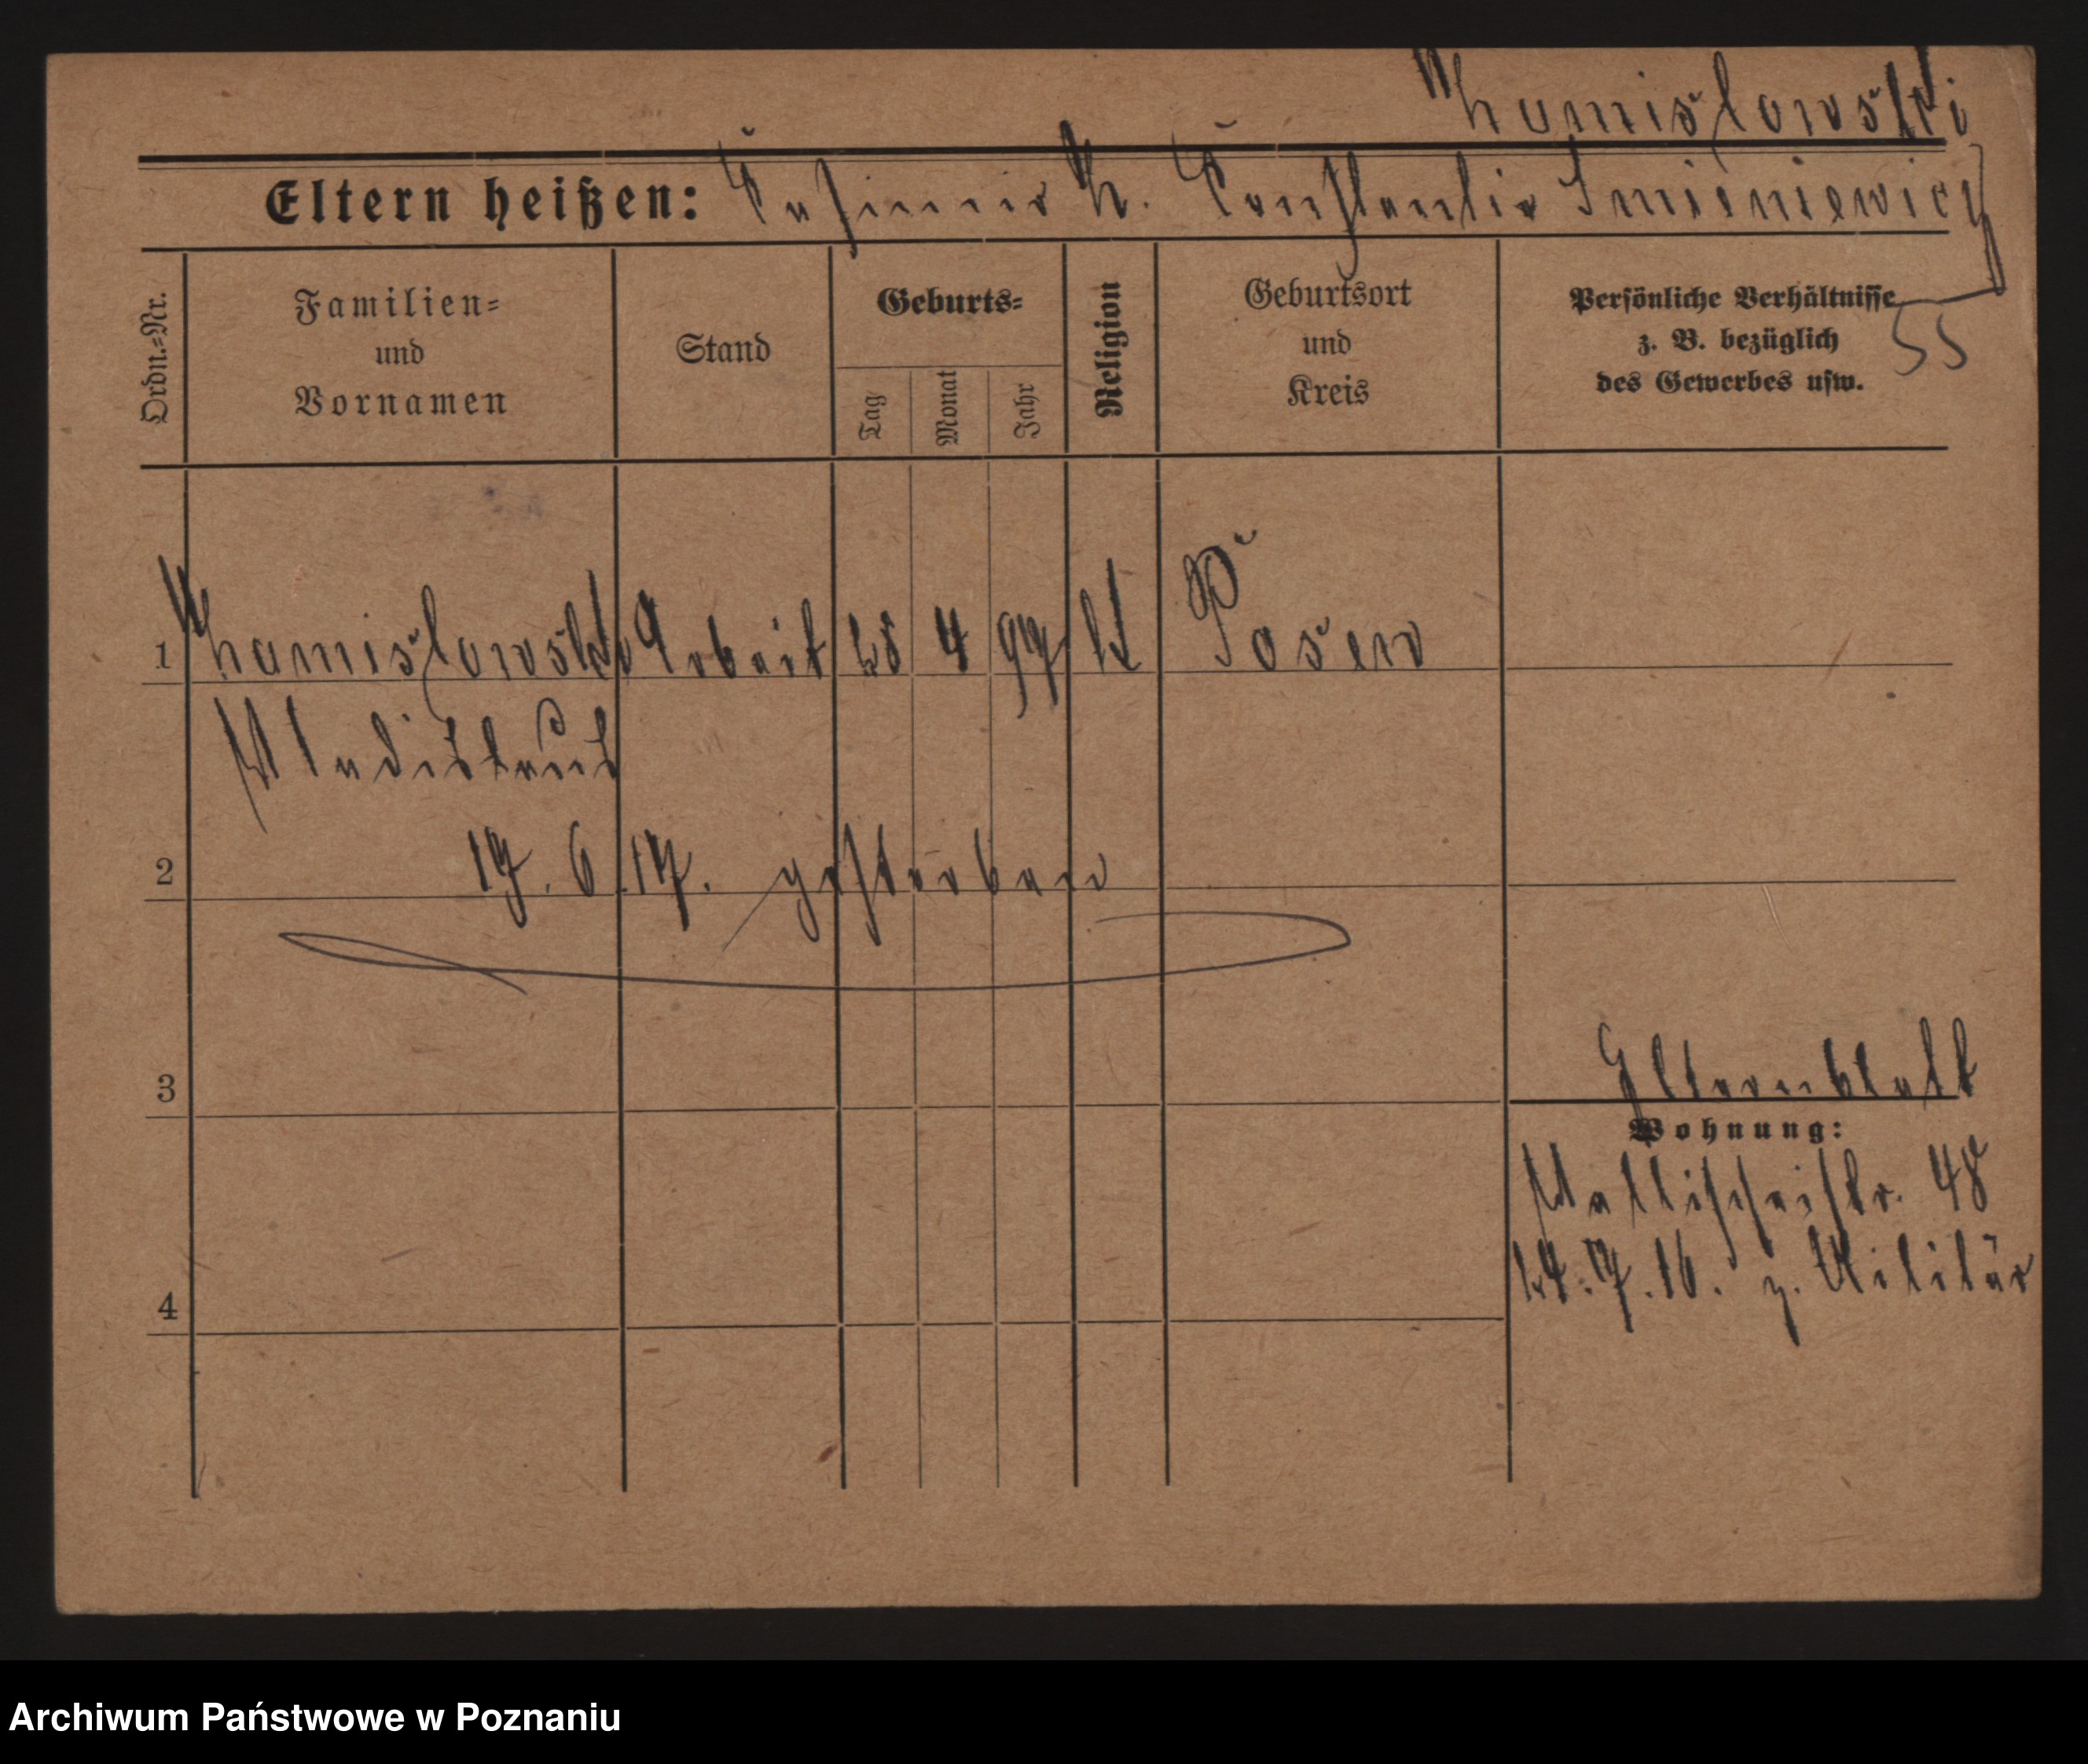 Chamislowski
Eltern heißen: Casimir u. Constantia Smieniewicz
Ordn.-Nr.
Familien-
und
Vornamen
Stand
Geburts-
Tag
Monat
Jahr
Religion
Geburtsort
und
Kreis
Persönliche Verhältnisse
z. B. bezüglich
des Gewerbes usw.
55
1 Chamislowski Arbeit 25 4 97 k Posen
Wladislaus
2 17. 6. 17. gestorben
3
Elternblatt
Wohnung:
Wallischeistr. 48
4 24. 7. 16. z. Militär
Archiwum Państwowe w Poznaniu